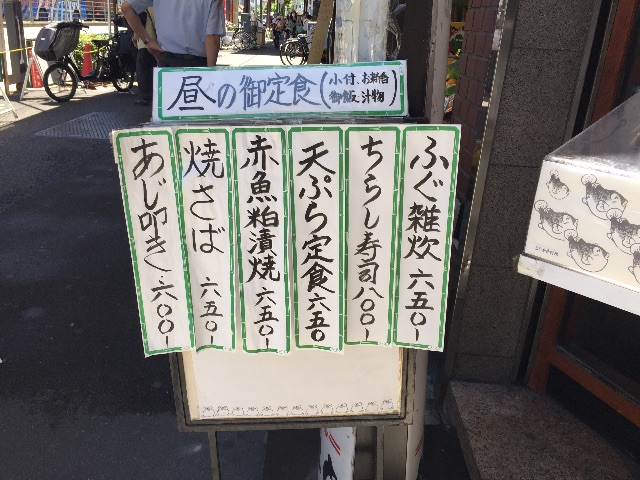 昼の御定食(小付、お新香
御飯、汁物)
ふぐ雑炊 六五〇-
ちらし寿司 八〇〇-
天ぷら定食 六五〇
赤魚粕漬焼 六五〇-
焼さば 六五〇-
あじ叩き 六〇〇-